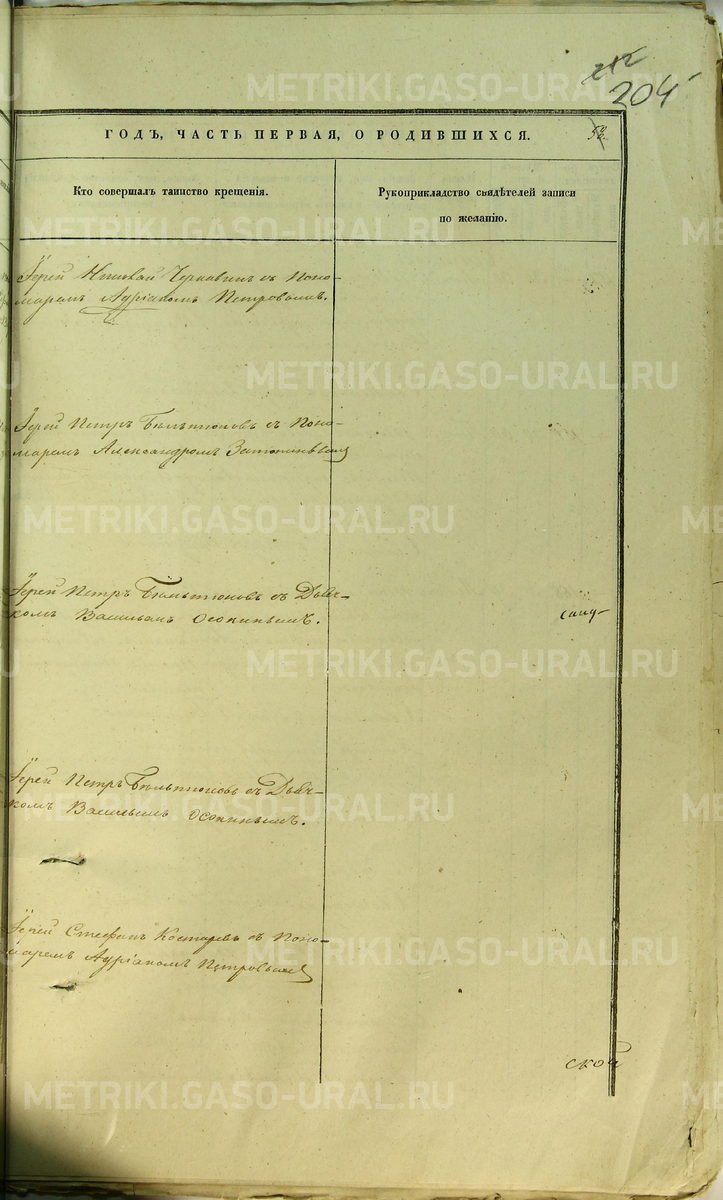 212
204
ГОДЪ, ЧАСТЬ ПЕРВАЯ, О РОДИВШИХСЯ.
Кто совершалъ таинство крещенія.
Рукоприкладство свидѣтелей записи
по желанію.
Іерей Николай Чернавинъ съ Поно-
маремъ Адріаномъ Петровымъ.
Іерей Петръ Бѣльтюковъ съ Поно-
маремъ Александромъ
Іерей Петръ Бѣльтюковъ съ Дьяч-
комъ Васильемъ Осокинымъ.
Іерей Петръ Бѣльтюковъ съ Дьяч-
комъ Васильемъ Осокинымъ.
Іерей Стефанъ Костаревъ съ Поно-
маремъ Адріаномъ Петровымъ
ской
METRIKI.GASO-URAL.RU